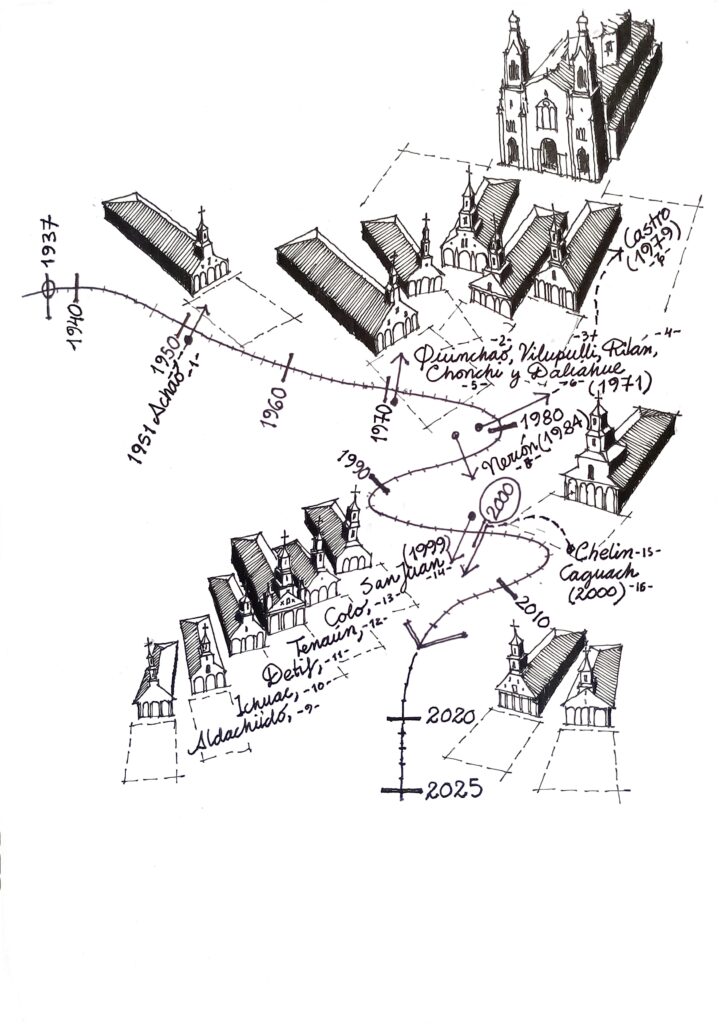 1937
1940
1950
1951 Achao,
-1-
1960
1970
Castro
(1979)
-7-
-2- -3- -4-
Quinchao, Vilupulli, Rilan,
Chonchi y Dalcahue
-5- -6- (1971)
1980
Nercón (1984)
-8-
1990
2000
San Juan (1999)
-14-
Colo, -13-
Tenaún, -12-
Detif, -11-
Ichuac, -10-
Aldachildo, -9-
Chelin -15-
Caguach
(2000) -16-
2010
2020
2025